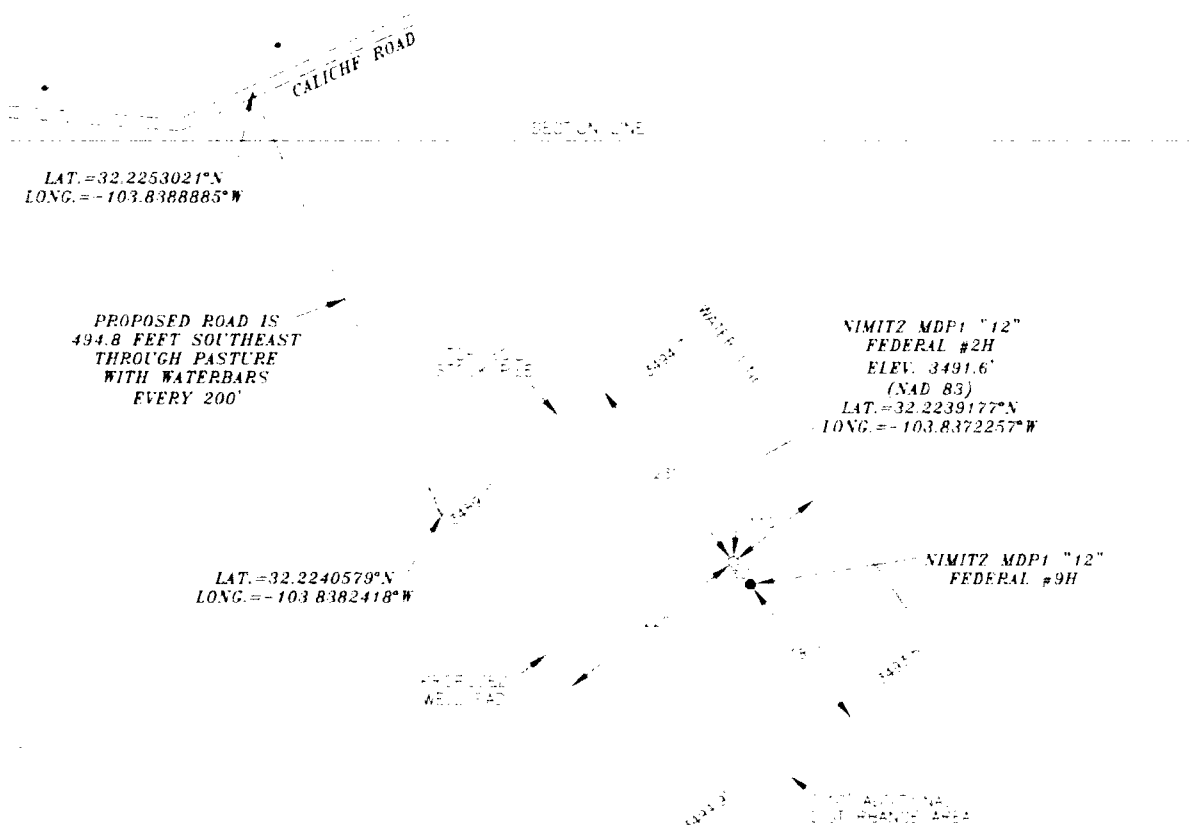 CALICHE ROAD
SECTION LINE
LAT.=32.2253021°N
LONG.=-103.8388885°W
PROPOSED ROAD IS
494.8 FEET SOUTHEAST
THROUGH PASTURE
WITH WATERBARS
EVERY 200'
WATER
NIMITZ MDP1 "12"
FEDERAL #2H
ELEV. 3491.6'
(NAD 83)
LAT.=32.2239177°N
LONG.=-103.8372257°W
LAT.=32.2240579°N
LONG.=-103.8382418°W
NIMITZ MDP1 "12"
FEDERAL #9H
PROPOSED
WELL PAD
3494.9'
ADDITIONAL
DISTURBANCE AREA